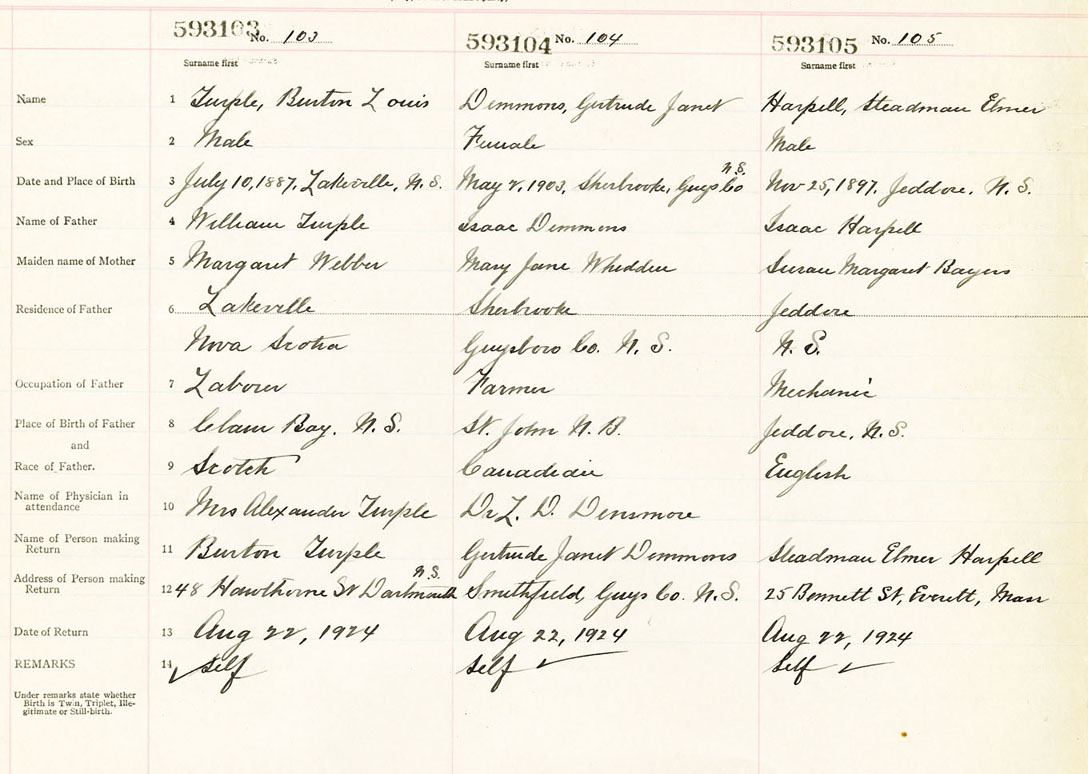 593103 No. 103 593104 No. 104 593105 No. 105
Surname first Surname first Surname first
Name 1 Turple, Burton Louis Demmons, Gertrude Janet Harpell, Steadman Elmer
Sex 2 Male Female Male
N.S.
Date and Place of Birth 3 July 10, 1887, Lakeville, N.S. May 2, 1903, Sherbrooke, Guys Co Nov 25, 1897, Jeddore, N.S.
Name of Father 4 William Turple Isaac Demmons Isaac Harpell
Maiden name of Mother 5 Margaret Webber Mary Jane Whidden Susan Margaret Bayers
Residence of Father 6 Lakeville Sherbrooke Jeddore
Nova Scotia Guysboro Co. N.S. N.S.
Occupation of Father 7 Laborer Farmer Mechanic
Place of Birth of Father 8 Clam Bay. N.S. St. John N.B. Jeddore, N.S.
and
Race of Father. 9 Scotch Canadian English
Name of Physician in
attendance 10 Mrs Alexander Turple Dr L. D. Densmore
Name of Person making
Return 11 Burton Turple Gertrude Janet Demmons Steadman Elmer Harpell
N.S.
Address of Person making
Return 12 48 Hawthorne St Dartmouth Smithfield, Guys Co. N.S. 25 Bennett St, Everett, Mass
Date of Return 13 Aug 22, 1924 Aug 22, 1924 Aug 22, 1924
REMARKS 14 Self Self Self
Under remarks state whether
Birth is Twin, Triplet, Ille-
gitimate or Still-birth.